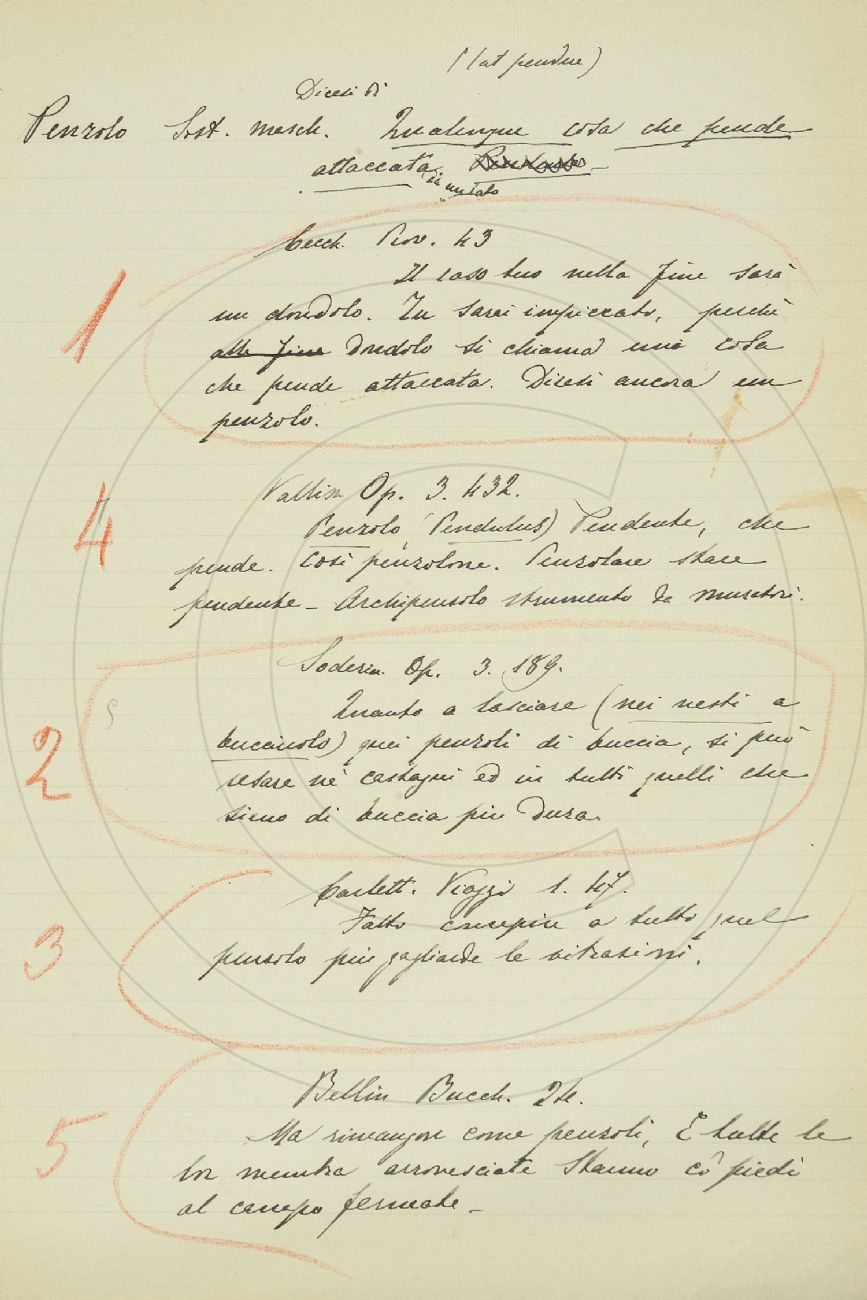 (lat pendere)
Dicesi di
Penzolo Sost. masch. Qualunque cosa che pende
attaccata
da un lato
Cecch. Prov. 43
1
Il caso tuo nella fine sarà
un dondolo. Tu sarai impiccato, perchè
alla fine Dondolo si chiama una cosa
che pende attaccata. Dicesi ancora un
penzolo.
Vallisn. Op. 3. 432.
4
Penzolo (Pendulus) Pendente, che
pende. Così penzolone. Penzolare stare
pendente – Archipenzolo strumento da muratori.
Soderin. Op. 3. 189.
Quanto a lasciare (nei nesti a
2
bucciuolo) quei penzoli di buccia, si può
ne' castagni ed in tutti quelli che
sieno di buccia più dura.
Carlett. Viaggi 1. 47.
3
Fatto concepire a tutto quel
penzolo più gagliarde le vibrazioni.
Bellin Bucch. 24.
5
Ma rimangon come penzoli, E tutte le
lor membra arrovesciate Stanno co' piedi
al canapo fermate –